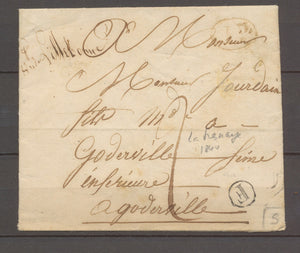 Monsieur
Monsieur Jourdain
fils Md a
Goderville Seine
inférieure
a goderville
H
S